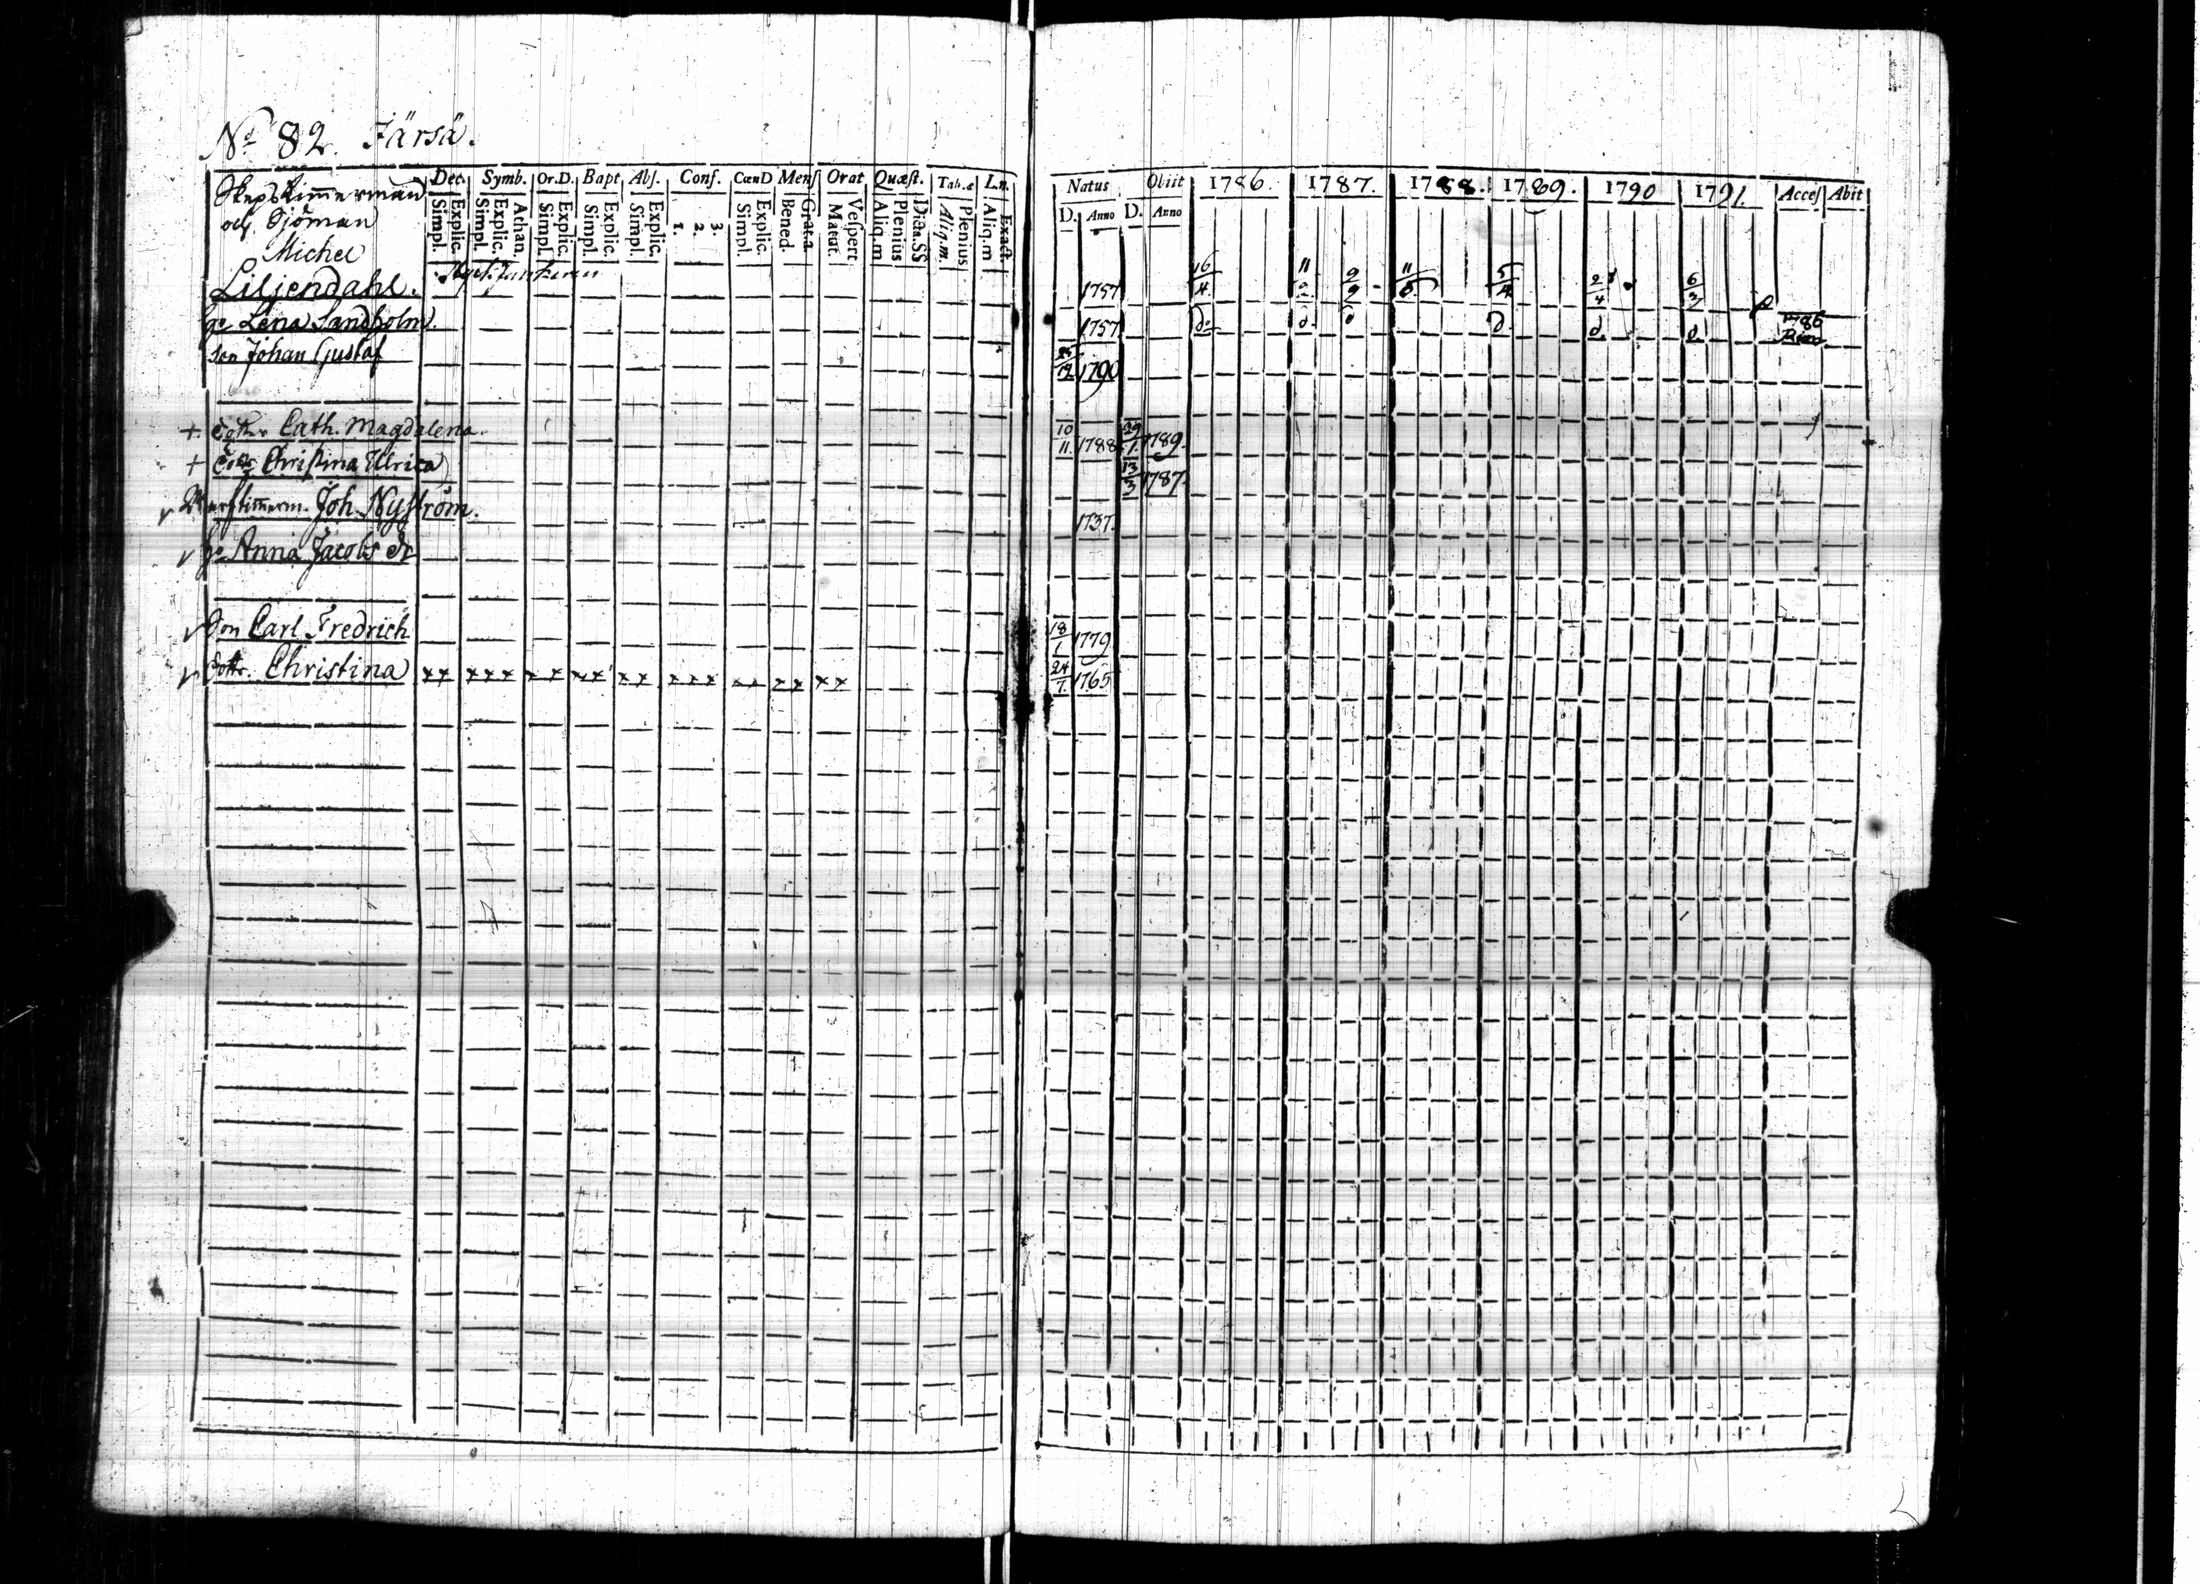 No 82. Järsä.
Det. Symb. Or.D. Bapt Abſ. Conf. CœnD Menſ Orat Quæſt. Tab.æ L.n.
Simpl. Explic. Simpl. Explic. Athan. Simpl. Explic. Simpl. Explic. Simpl. Explic. 1. 2. 3. Simpl. Explic. Bened. Grat.a. Matut. Veſpert Aliq.m Plenius Dicta.SS Aliq.m. Plenius Aliq.m Exact.
Skeps Timmerman
och Sjöman
Michel
Liljendahl.
ge Lena Sandholm.
son Johan Gustaf
+ Dottr Cath. Magdalena.
+ Dottr Christina Ulrica
Joh. Nyström.
ge Anna Jacobs dr
Son Carl Fredrich
Dottr. Christina xx xxx xx xx xx xxx xx xx xx
Natus Obiit 1786. 1787. 1788. 1789. 1790 1791. Acceſ Abit
D. Anno D. Anno
1757 16/4 11/2 9/9 11/5 5/4 2/4 6/3
1757 do d. d d. d. d. 1786
12 1790
10/11 1788 29/1 1789.
13/3 1787.
1737.
18/1 1779
24/7 1765